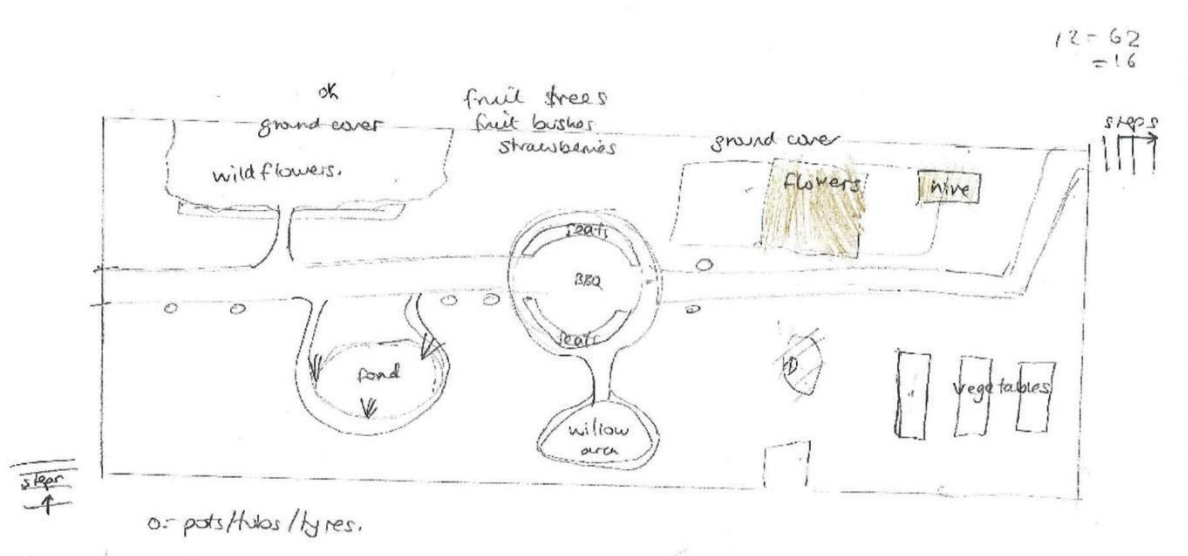 12 = 62
= 16
steps
ok
ground cover
wildflowers.
fruit trees
fruit bushes
strawberries
ground cover
flowers
hive
seats
BBQ
seats
pond
vegetables
willow
arch
steps
o = pots/tubs/tyres.